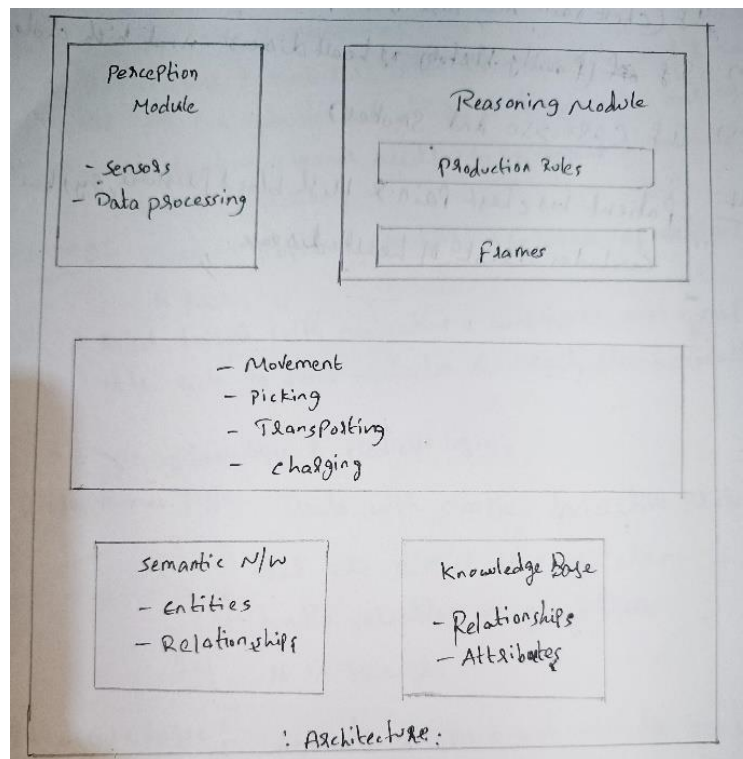 Perception
Module
- Sensors
- Data processing
Reasoning Module
Production Rules
Frames
- Movement
- Picking
- Transporting
- Charging
Semantic N/W
- Entities
- Relationships
Knowledge Base
- Relationships
- Attributes
: Architecture :